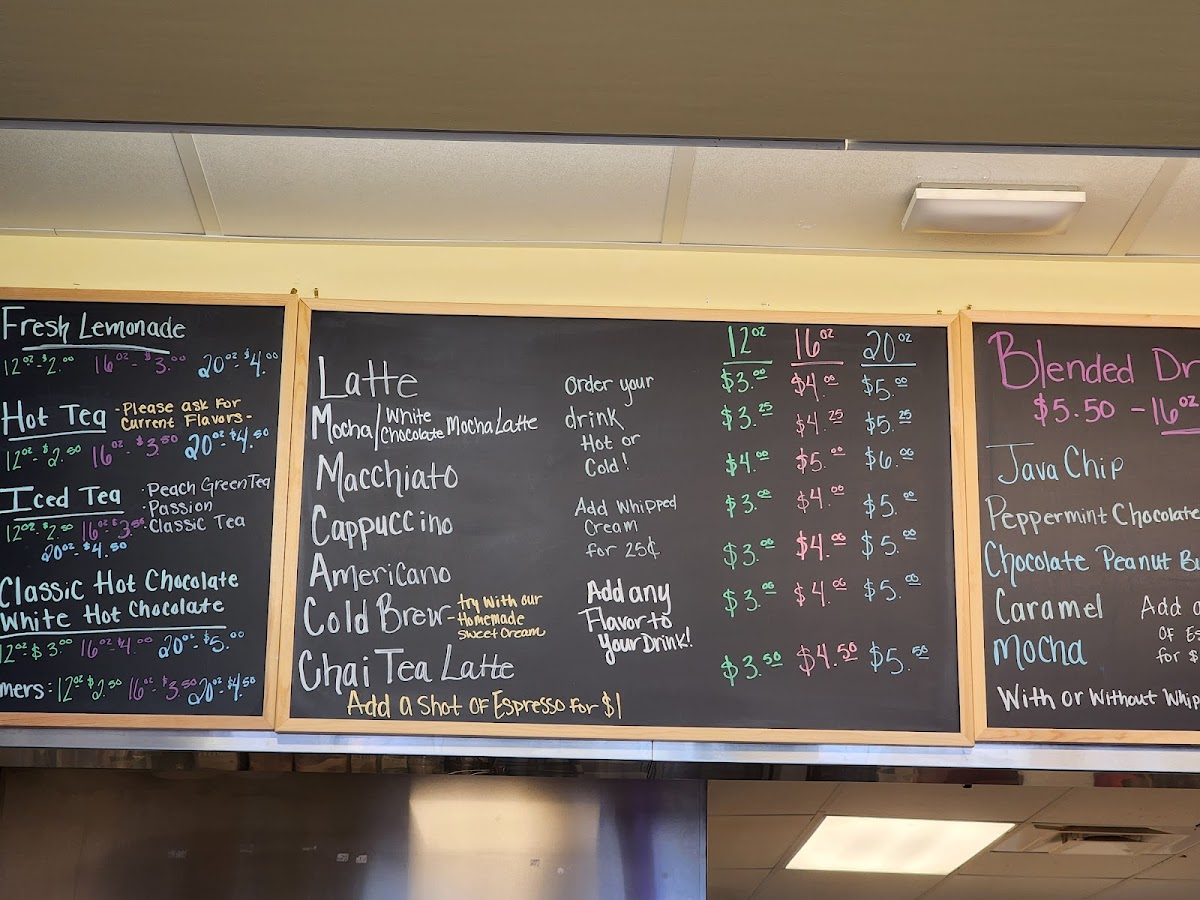 Fresh Lemonade
12oz-$2.00 16oz-$3.00 20oz-$4.00
Hot Tea -Please ask for
Current Flavors-
12oz-$2.50 16oz-$3.50 20oz-$4.50
Iced Tea · Peach Green Tea
· Passion
12oz-$2.50 16oz-$3.50 · Classic Tea
20oz-$4.50
Classic Hot Chocolate
White Hot Chocolate
12oz-$3.00 16oz-$4.00 20oz-$5.00
mers: 12oz-$2.50 16oz-$3.50 20oz-$4.50
12oz 16oz 20oz
Latte $3.00 $4.00 $5.00
Mocha/White Chocolate Mocha Latte $3.25 $4.25 $5.25
Macchiato $4.00 $5.00 $6.00
Cappuccino $3.00 $4.00 $5.00
Americano $3.00 $4.00 $5.00
Cold Brew - try with our Homemade sweet cream $3.00 $4.00 $5.00
Chai Tea Latte $3.50 $4.50 $5.50
Add a shot of Espresso for $1
Order your
drink
Hot or
Cold!
Add Whipped
Cream
for 25¢
Add any
Flavor to
Your Drink!
Blended
$5.50 - 16oz
Java Chip
Peppermint Chocolate
Chocolate Peanut
Caramel
Mocha
Add
OF
for $
With or Without